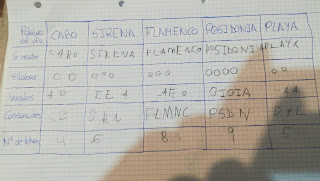 Palabra del día CABO SIRENA FLAMENCO POSIDONIA PLAYA
Se escribe CABO SIRENA FLAMENCO POSIDONIA PLAYA
Sílabas
Vocales AO IEA AEO OIOIA AA
Consonantes CB SRN FLMNC PSDN PLY
Nº de letras 4 6 8 9 5